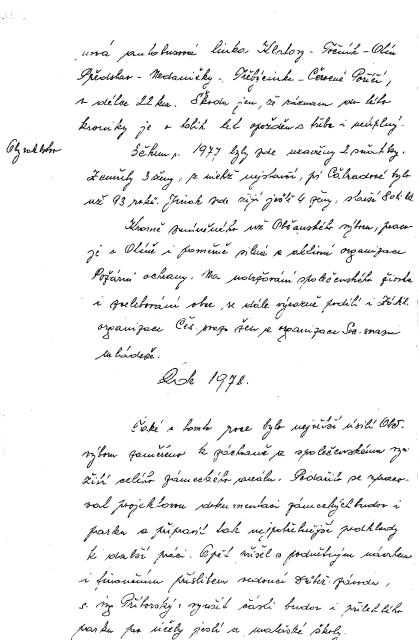 nová autobusová linka Klatovy - Točník - Olín
Předslav - Nedaničky - Třebýcinka - Červené Poříčí,
v délce 22 km. Škoda jen, že záznam do této
kroniky je o tolik let opožděn a třeba i neúplný.
Obyvatelstvo
Během r. 1977 byly zde uzavřeny 2 sňatky.
Zemřely 3 ženy, z nichž nejstarší, pí Cihadové bylo
už 93 roků. Jinak zde žijí ještě 4 ženy, starší 80ti let
Kromě zmíněného už Občanského výboru, pracu-
je v Olíně i poměrně silná a aktivní organizace
Požární ochrany. Na udržování společenského života
i zvelebování obce, se dále výrazně podílí i Zákl.
organizace Čes. svazu žen a organizace Soc. svazu
mládeže.
Rok 1978.
Také v tomto roce bylo největší úsilí Obč.
výboru zaměřeno k záchraně a společenskému vyu-
žití celého zámeckého areálu. Podařilo se zpraco-
val projektovou dokumentaci zámeckých budov i
parku a připravit tak nejpotřebnější podklady
k další práci. Opět přišel s podnětným návrhem
i finančním příslibem vedoucí závodu,
s. ing. využít části budov i přilehlého
parku pro účely jeslí a mateřské školy.